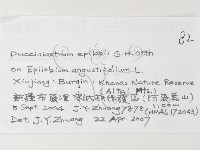 32
Pucciniastrum epilobii G. H. Otth
on Epilobium angustifolium L.
Xinjiang: Burqin: Khanas Nature Reserve
(Altai Mts.)
新疆布尔津 喀纳斯保护区 (阿尔泰山)
5 Sept. 2004 J.Y. Zhuang 7878 (HMAS 172043)
Det. J.Y. Zhuang 22 Apr 2007